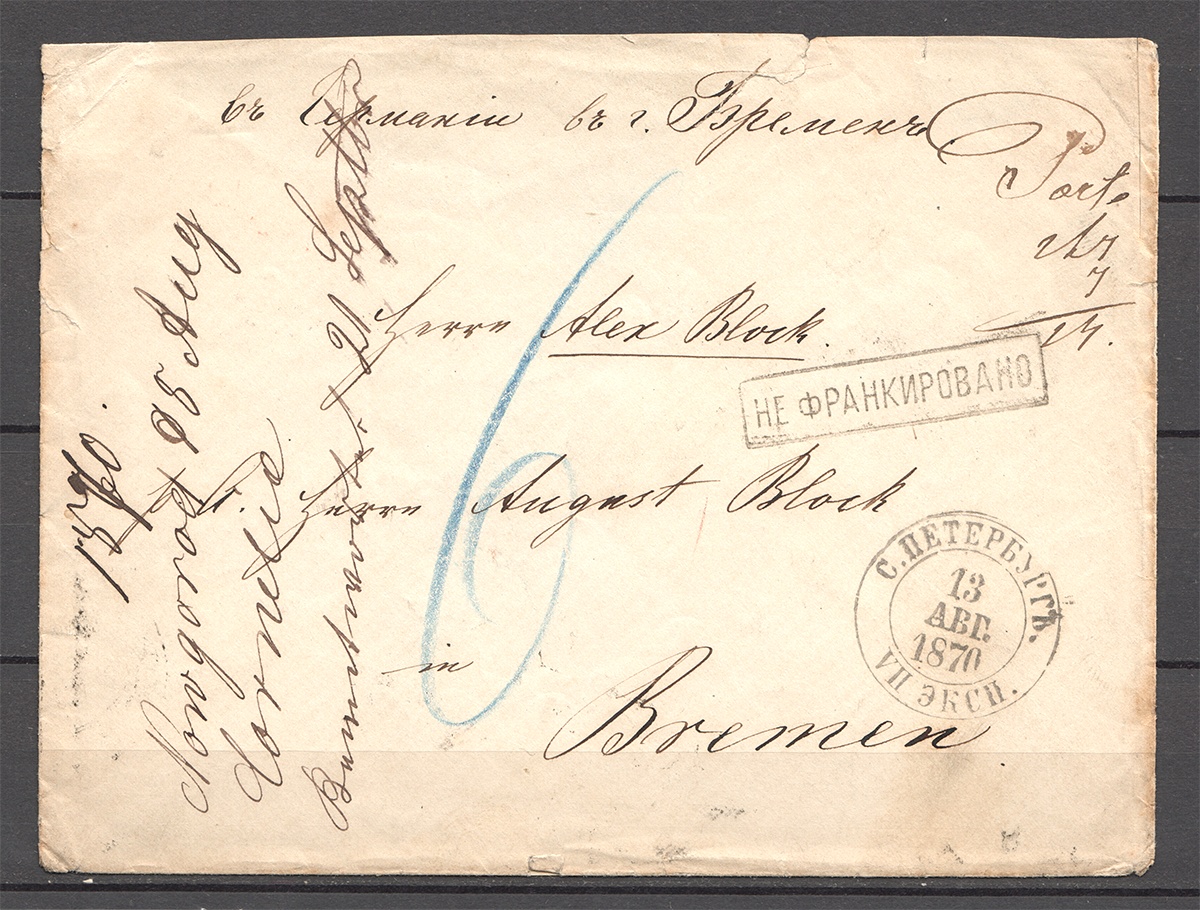 въ Германіи въ г. Бременъ
Porto
Herrn Alex Block.
НЕ ФРАНКИРОВАНО
Herrn August Block
in
Bremen
С. ПЕТЕРБУРГЪ.
13
АВГ.
1870
VII ЭКСП.
6
1870.
Nowgorod 28 Aug
Cornelia
Beantwortet 21 Septbr